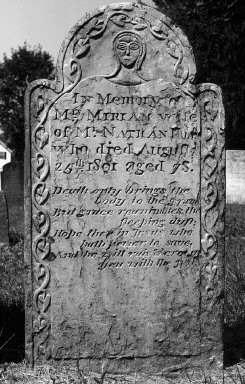 In Memory of
Mrs MIRIAM wife
of Mr NATHAN
who died August
25th 1801 aged 78.
Death only brings the
body to the grave
But grace reanimates the
sleeping dust,
Hope thou in Jesus who
hath power to save,
And he will
with the